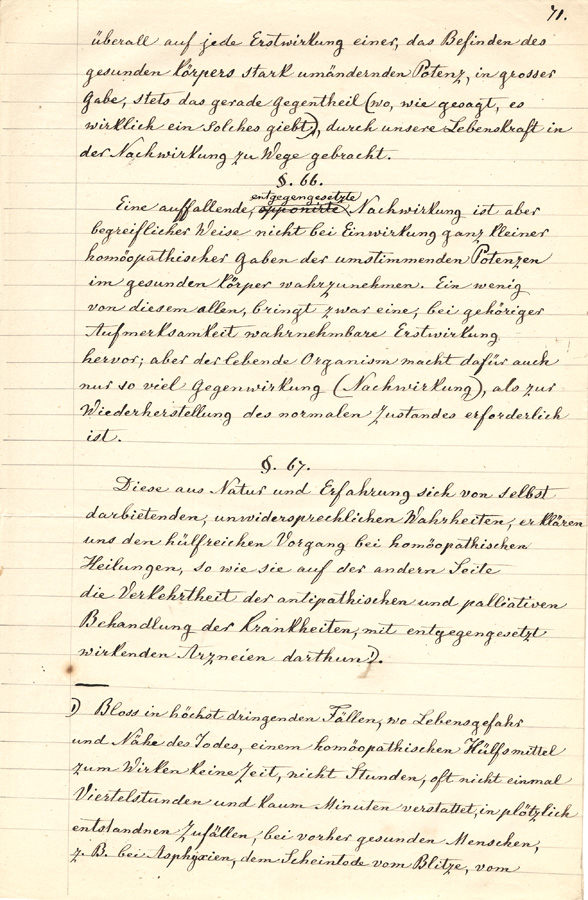 71.
überall auf jede Erstwirkung einer, das Befinden des
gesunden Körpers stark umändernden Potenz, in grosser
Gabe, stets das gerade Gegentheil (wo, wie gesagt, es
wirklich ein solches giebt), durch unsere Lebenskraft in
der Nachwirkung zu Wege gebracht.
§. 66.
entgegengesetzte
Eine auffallende, opponirte Nachwirkung ist aber
begreiflicher Weise nicht bei Einwirkung ganz kleiner
homöopathischer Gaben der umstimmenden Potenzen
im gesunden Körper wahrzunehmen. Ein wenig
von diesem allen, bringt zwar eine, bei gehöriger
Aufmerksamkeit wahrnehmbare Erstwirkung
hervor; aber der lebende Organism macht dafür auch
nur so viel Gegenwirkung (Nachwirkung), als zur
Wiederherstellung des normalen Zustandes erforderlich
ist.
§. 67.
Diese aus Natur und Erfahrung sich von selbst
darbietenden, unwidersprechlichen Wahrheiten, erklären
uns den hülfreichen Vorgang bei homöopathischen
Heilungen, so wie sie auf der andern Seite
die Verkehrtheit der antipathischen und palliativen
Behandlung der Krankheiten, mit entgegengesetzt
wirkenden Arzneien darthun 1).
1) Bloss in höchst dringenden Fällen, wo Lebensgefahr
und Nähe des Todes, einem homöopathischen Hülfsmittel
zum Wirken keine Zeit, nicht Stunden, oft nicht einmal
Viertelstunden und kaum Minuten verstattet, in plötzlich
entstandnen Zufällen, bei vorher gesunden Menschen,
z. B. bei Asphyxien, dem Scheintode vom Blitze, vom